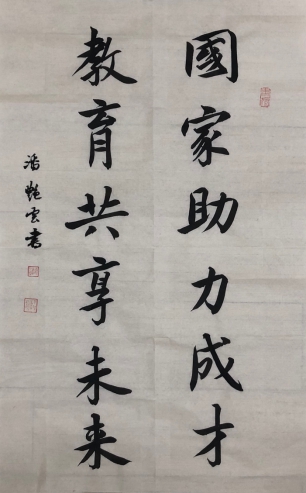 國家助力成才
教育共享未来
潘艷雲書